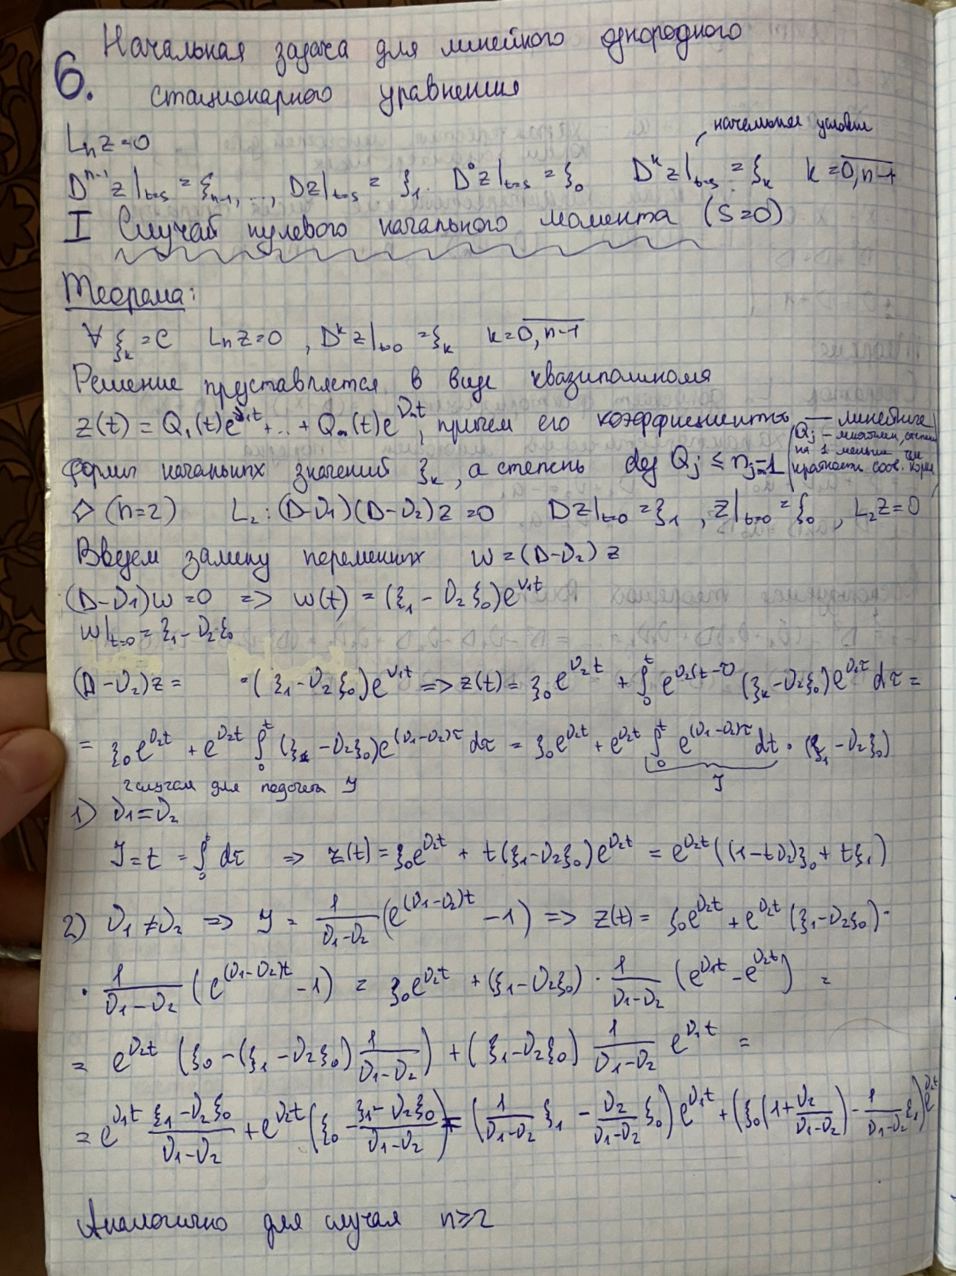 6. Начальная задача для линейного однородного
стационарного уравнения
начальные условия
Lₙz=0
Dⁿ⁻¹z|ₜ₌ₛ = ξₙ₋₁, ..., Dz|ₜ₌ₛ = ξ₁. D⁰z|ₜ₌ₛ = ξ₀ Dᵏz|ₜ₌ₛ = ξₖ k = 0,n-1
I Случай нулевого начального момента (S=0)
Теорема:
∀ ξₖ = C Lₙz=0 , Dᵏz|ₜ₌₀ = ξₖ k=0,n-1
Решение представляется в виде квазиполинома
z(t) = Q₁(t)e^{ν₁t}+..+ Qₘ(t)e^{ν₂t}, причем его коэффициенты — линейные
формы начальных значений ξₖ, а степень deg Qⱼ ≤ nⱼ-1
(Qⱼ – многочлен, степени
на 1 меньше чем
кратность соов. корня)
◇ (n=2) L₂: (D-ν₁)(D-ν₂)z=0 Dz|ₜ₌₀ = ξ₁ , z|ₜ₌₀ = ξ₀ , L₂z=0
Введем замену переменных w=(D-ν₂)z
(D-ν₁)w=0 => w(t) = (ξ₁-ν₂ξ₀)e^{ν₁t}
w|ₜ₌₀ = ξ₁-ν₂ξ₀
(D-ν₂)z = ·(ξ₁-ν₂ξ₀)e^{ν₁t} => z(t) = ξ₀e^{ν₂t} + ∫₀ᵗ e^{ν₂(t-τ)}(ξₖ-ν₂ξ₀)e^{ν₁τ}dτ =
= ξ₀e^{ν₂t} + e^{ν₂t} ∫₀ᵗ (ξ₁-ν₂ξ₀)e^{(ν₁-ν₂)τ}dτ = ξ₀e^{ν₂t} + e^{ν₂t} ∫₀ᵗ e^{(ν₁-ν₂)τ}dτ · (ξ₁-ν₂ξ₀)
J
2 случая для подсчета J
1) ν₁=ν₂
J=t = ∫₀ᵗ dτ => z(t) = ξ₀e^{ν₂t} + t(ξ₁-ν₂ξ₀)e^{ν₂t} = e^{ν₂t}((1-tν₂)ξ₀+tξ₁)
2) ν₁≠ν₂ => J = 1/(ν₁-ν₂) (e^{(ν₁-ν₂)t} -1) => z(t) = ξ₀e^{ν₂t} + e^{ν₂t}(ξ₁-ν₂ξ₀)·
· 1/(ν₁-ν₂) (e^{(ν₁-ν₂)t}-1) = ξ₀e^{ν₂t} + (ξ₁-ν₂ξ₀) · 1/(ν₁-ν₂) (e^{ν₁t}-e^{ν₂t}) =
= e^{ν₂t} (ξ₀-(ξ₁-ν₂ξ₀) 1/(ν₁-ν₂)) + (ξ₁-ν₂ξ₀) 1/(ν₁-ν₂) e^{ν₁t} =
= e^{ν₁t} (ξ₁-ν₂ξ₀)/(ν₁-ν₂) + e^{ν₂t}(ξ₀ - (ξ₁-ν₂ξ₀)/(ν₁-ν₂)) = (1/(ν₁-ν₂) ξ₁ - ν₂/(ν₁-ν₂) ξ₀)e^{ν₁t} + (ξ₀(1+ν₂/(ν₁-ν₂)) - 1/(ν₁-ν₂) ξ₁)e^{ν₂t}
Аналогично для случая n≥2